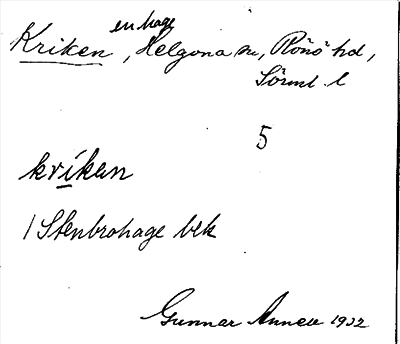 en hage
Kriken, Helgona sn, Rönö hd,
Sörml. l
5
kríkan
/ Stenbrohage bek
Gunnar 1932